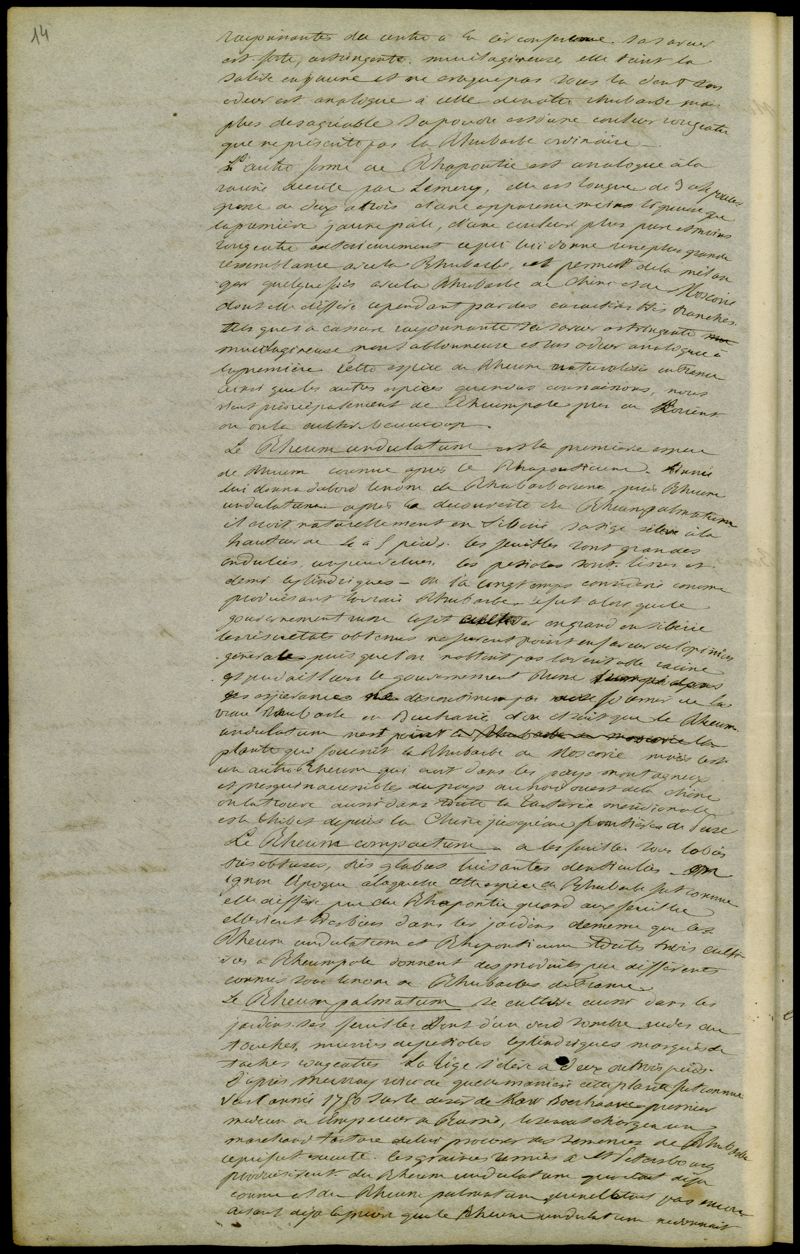 14
rayonnantes du centre à la circonference. Sa saveur
est forte, astringente, mucilagineuse, elle teint la
salive en jaune et ne craque pas sous la dent son
odeur est analogue à celle de notre rhubarbe mais
plus desagréable sa poudre est d'une couleur rougeatre
que ne présente pas la Rhubarbe ordinaire
L'autre forme de Rhapontic est analogue à la
racine decrite par Lemery, elle est longue de 3 a 4 pouces
grosse de deux à trois d'une apparence moins ligneuse que
la première jaune pale, d'une couleur plus pure et moins
rougeatre exterieurement ce qui lui donne une plus grande
ressemblance avec la Rhubarbe, et permet de la mélan
ger quelquefois avec la Rhubarbe de Chine et de Moscovie
dont elle diffère cependant par des caractères très tranchés.
tels que sa cassure rayonnante sa saveur astringente
mucilagineuse non sablonneuse et son odeur analogue à
la première Cette espèce de Rheum naturalisée en France
ainsi que les autres espèces que nous connaissons, nous
vient principalement de Rheumpole près de Lorient
où on la cultive beaucoup.
Le Rheum undulatum est la première espèce
de Rheum connue après le Rhaponticum. Linnée
lui donna d'abord le nom de Rhabarbarum, puis Rheum
undulatum après la decouverte du Rheum palmatum
il croit naturellement en Siberie sa tige s'élève à la
hauteur de 4 a 5 pieds. les feuilles sont grandes
ondulées, les petioles sont lisses et
demi cylindriques — On l'a longtemps considéré comme
produisant la vraie Rhubarbe ce fut alors que le
gouvernement russe le fit cultiver en grand en Siberie
les résultats obtenus ne furent point en faveur de l'opinion
générale puisque l'on n'obtint pas la véritable racine
et le gouvernement Russe trompé dans
ses espérances de la
vraie Rhubarbe en Bucharie d'où il suit que le Rheum
undulatum n'est point la Rhubarbe de moscovie la
plante qui fournit la Rhubarbe de Moscovie mais c'est
un autre Rheum qui croit dans les pays montagneux
et presque inaccessibles du pays au nord ouest de la Chine
on la trouve aussi dans toute la Tartarie méridionale
et le Thibet depuis la Chine jusqu'aux frontières de
Le Rheum compactum a les feuilles sous lobées
très obtuses, très glabres luisantes denticulées on
ignore l'époque à laquelle cette espèce de Rhubarbe fut connue
elle diffère peu du Rhapontic quand aux feuilles
elle vient très bien dans les jardins de meme que les
Rheum undulatum et Rhaponticum toutes trois culti
vées à Rheumpole donnent des produits peu différents
connus sous le nom de Rhubarbes de France
Le Rheum palmatum se cultive aussi dans les
jardins ses feuilles sont d'un verd sombre rudes au
toucher, munies de petioles cylindriques marqués de
taches rougeatres La tige s'élève a deux ou trois pieds.
D'après Murray voici de quelle maniere cette plante fut connue
Vers l'année 1750 sur le désir de Kaw Boerhaave premier
medecin de l'Empereur de Russie, le senat chargea un
marchand tartare de lui procurer des semences de Rhubarbe
ce qui fut executé. les graines semées à St Petersbourg
produisirent du Rheum undulatum qui etait déja
connu et du Rheum palmatum qui ne l'etait pas encore
ayant déja la preuve que le Rheum undulatum ne donnait